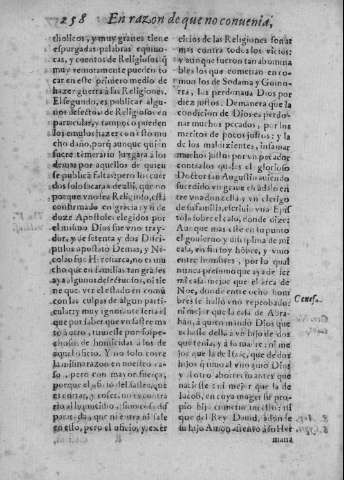 258 En razon de que no conuenia,
tholicos, y muy graues tiene
espurgadas palabras equiuo-
cas, y cuentos de Religiosos q̃
muy remotamente pueden to-
car en este primero medio de
hazer guerra a las Religiones.
El segundo, es publicar algu-
nos defectos de Religioso en
particular, y tampoco pierden
los emulos hazer con esto mu
cho daño, porq̃ aunque quien
fuere temerario juzgara a los
demas por aquellos de quien
se publica faltas: pero los cuer
dos solo sacaran de alli, que no
porque vno sea Religioso, està
confirmado en gracia y si de
doze Apostoles elegidos por
el mismo Dios fue vno tray-
dor, y de setenta y dos Disci-
pulos apostatò Demas, y Ni-
colao fue H
cho que en familias tan grādes
aya algunos defectuosos, ni se
me que. Ver el estado en comū
con las culpas de algun parti-
cular, y muy ignorante seria el
que por saber que vn sastre ma
tò a otro, tuuiesse por sospe-
chosos de homicidas à los de
aquel oficio. Y no solo corre
la misma razon en nuestro ca-
so, pero con mayor fuerça,
porque el oficio del sastre, que
es cortar, y coser, no es contra
rio al homicidio,
pero con el nuestro, y exer
cicios de las Religiones son ar
mas contra todos los vicios:
y aunque fueron tan abomina
bles los que cometian en co-
mun los de Sodoma y Gomo-
rra, las perdonaua Dios por
diez justos. De manera que la
condicion de Dios es perdo-
nar muchos pecados, por los
meritos de pocos justos; y la
de los maldizientes, infamar
muchos justos por vn pecador
contra los quales el glorioso
Doctor san Augustin auiendo
sucedido vn graue escādalo en
tre vna donzella y vn clerigo
de su familia, escriuio vna Epis
tola sobre el caso, donde dize:
Aunque mas estè en su punto
el gouierno y disciplina de mi
casa, en fin soy hōbre, y viuo
entre hombres, por lo qual
nunca presumo que aya de ser
mi casa mejor que el arca de
Noe, donde entre ocho hom
bres se hallò vno reprobado:
ni mejor que la casa de Abra-
hā, à quien mandò Dios que
echasse della à vn hijo de dos
que tenia, y à su madre: ni me
jor que la de Isac, que de dos
hijos q̃ tuuo al vno quiso Dios
y al otro aborrecio antes que
naciesse: ni mejor que la de
Iacob, en cuya mager su pro-
pio hijo cometio incesto; ni
que del Rey Dauid, à don se
su hijo Amon afrentò à su Her
mana
Genes.